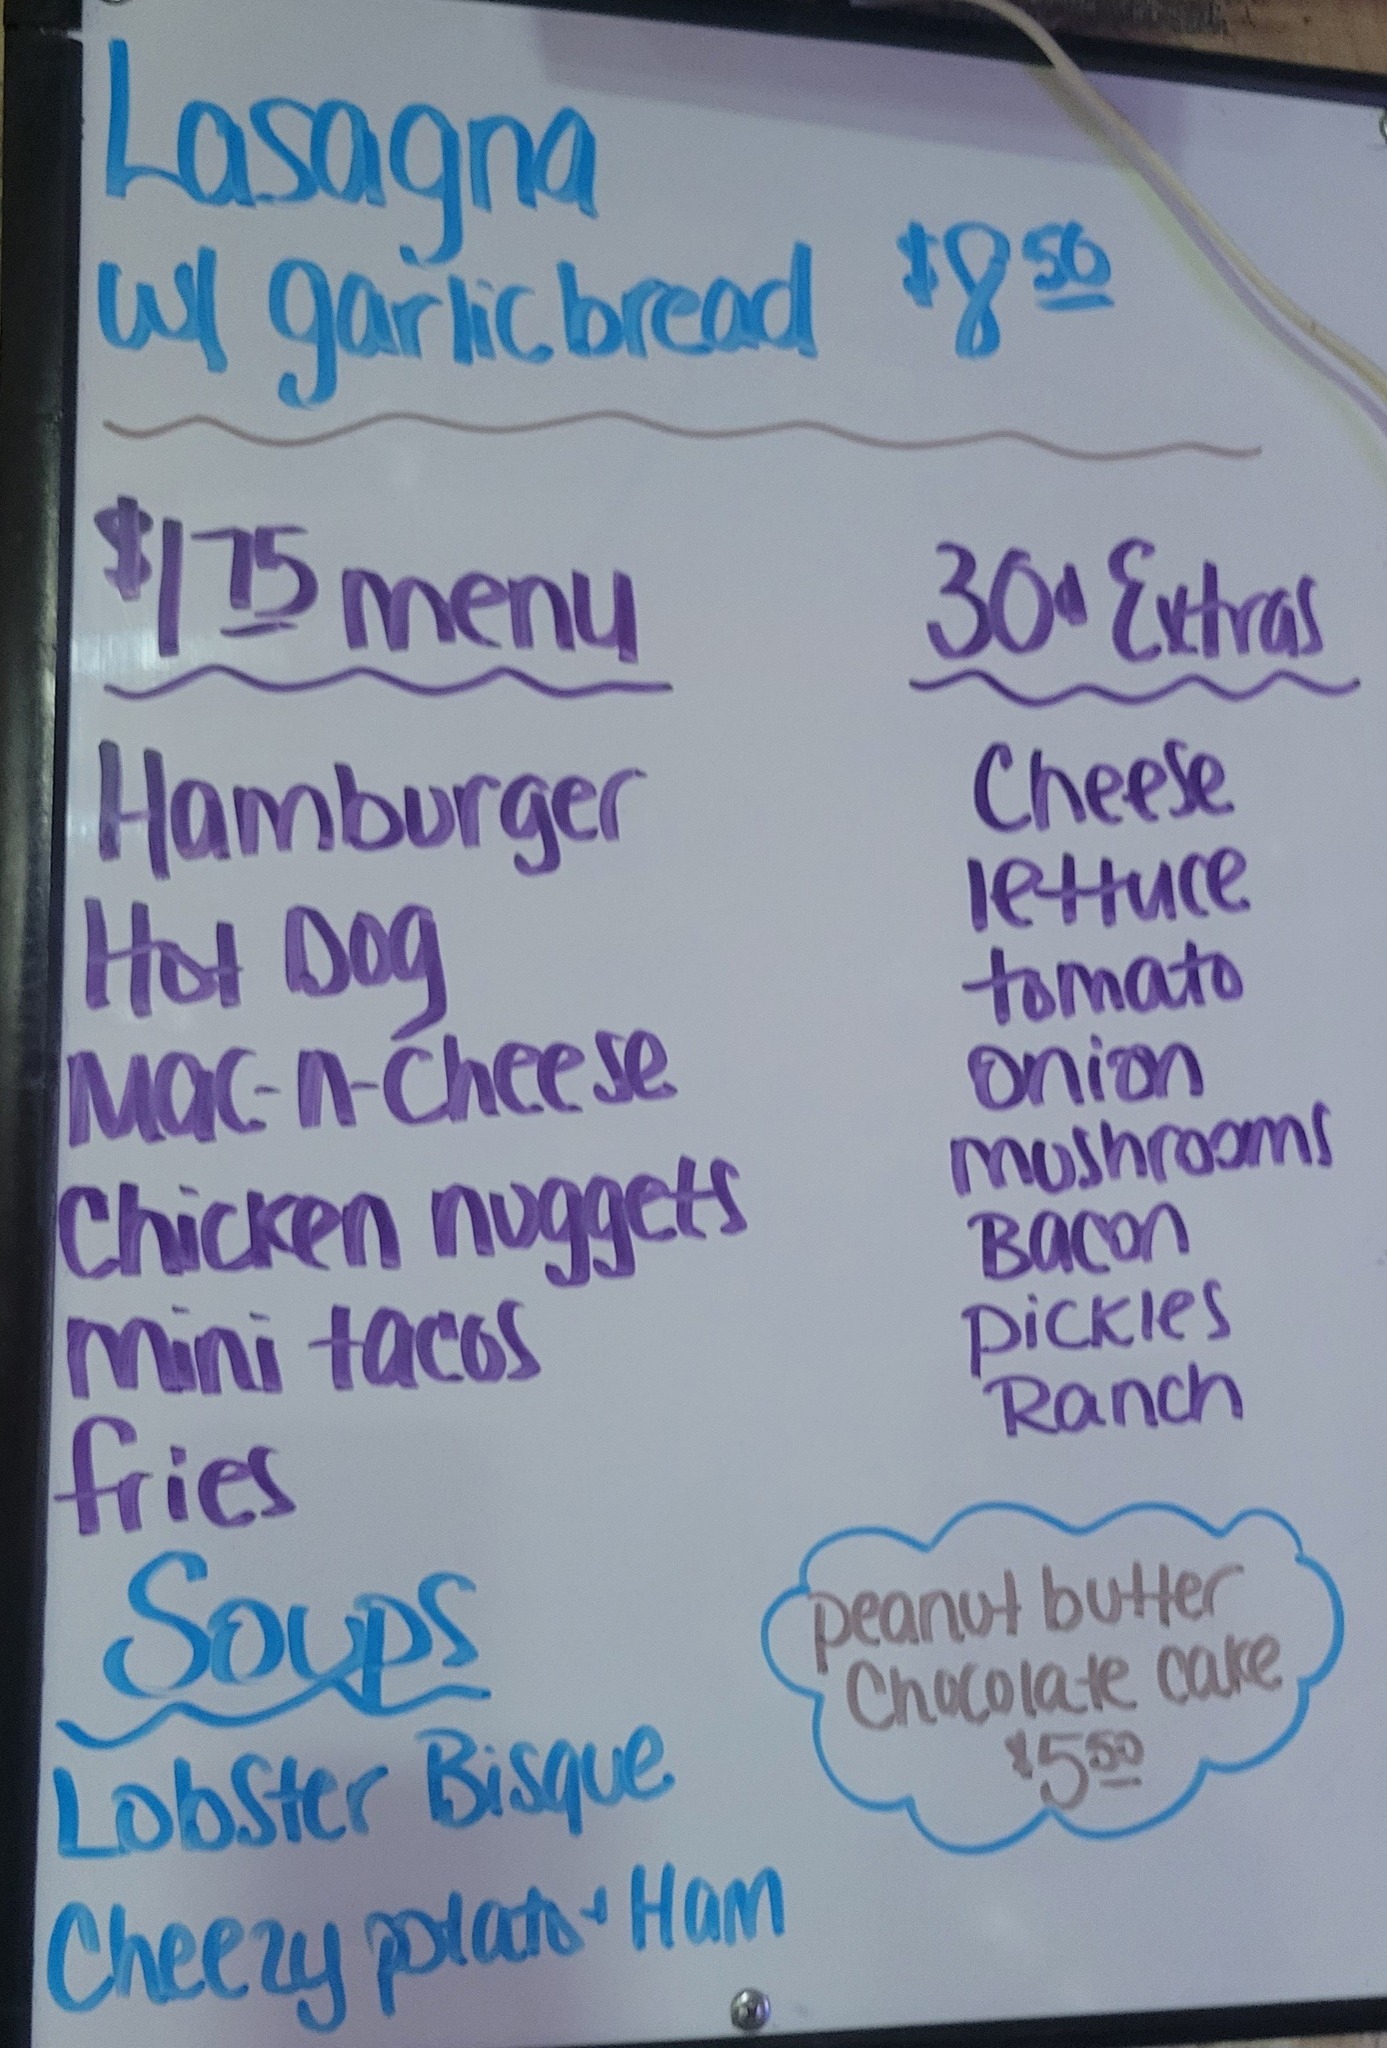 Lasagna
w/ garlic bread $8 50
$1 75 menu
Hamburger
Hot Dog
Mac-n-Cheese
Chicken nuggets
mini tacos
fries
30¢ Extras
Cheese
lettuce
tomato
onion
mushrooms
Bacon
pickles
Ranch
Soups
Lobster Bisque
Cheezy potato + Ham
peanut butter
Chocolate cake
$5 50